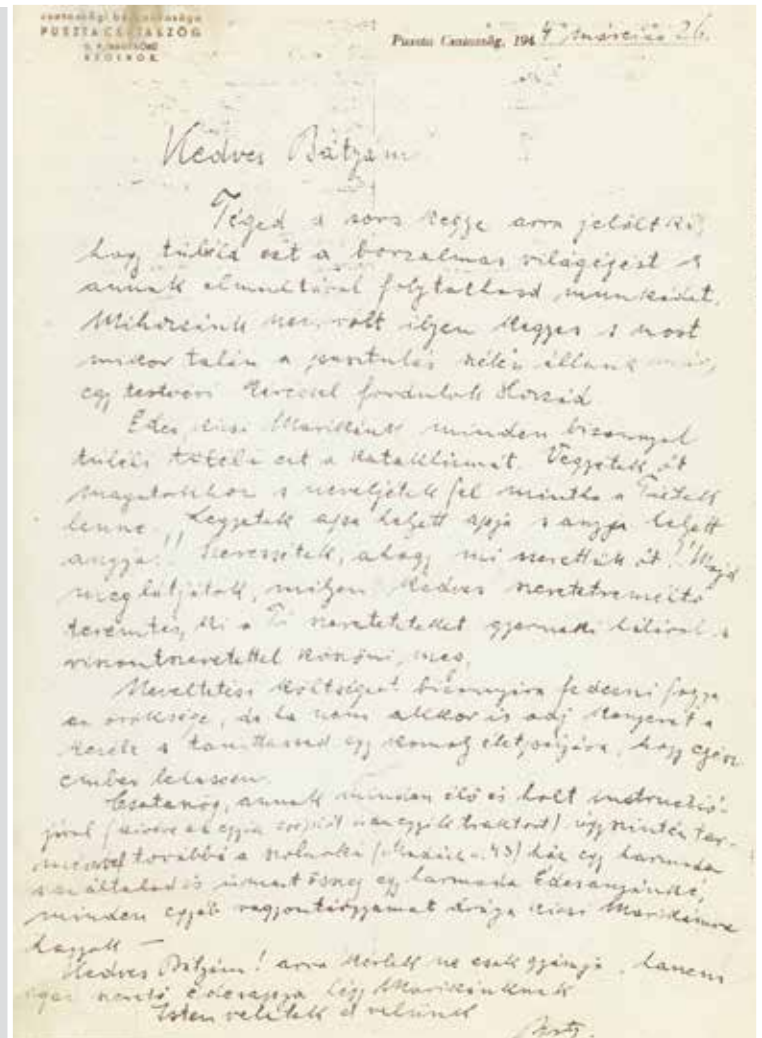 PUSZTA CSATASZÖG
Puszta Csataszög, 194 4 március 26.
Kedves Bátyám
Téged a sors kegye arra jelölt ki,
hogy túléld ezt a borzalmas világégést s
annak elmultával folytathasd munkádat.
nem volt ilyen kegyes s most
mikor talán a pusztulás szélén állunk
egy testvéri kéréssel fordulok Hozzád
Édes kicsi Marikánk minden bizonnyal
túléli ezt a kataklizmát. Vegyétek át
magatokhoz s neveljétek fel mintha a Tiétek
lenne. Legyetek apja helyett apja s anyja helyett
anyja!! Szeressétek, ahogy mi szerettük őt! Majd
meglátjátok, milyen kedves szeretetreméltó
teremtés, ki a Ti szereteteteket gyermeki hálával s
viszontszeretettel köszöni meg.
Neveltetési költségeit bizonyára fedezni fogja
az öröksége, de ha nem akkor is adj kenyeret a
kezébe s taníttassad egy komoly életpályára, hogy egész
ember lehessen.
Csataszög, annak minden élő és holt instructió-
jával (kivéve az egyik cséplőt s az egyik traktort) úgyszintén ter-
továbbá a szolnoki ház egy harmada
s az általad is ismert összeg egy harmada Édesanyánké,
minden egyéb vagyontárgyamat drága kicsi Marikámra
hagyok —
Kedves Bátyám! arra kérlek ne csak gyámja, hanem
igazi szerető édesapja légy Marikánknak
Isten veletek s velünk